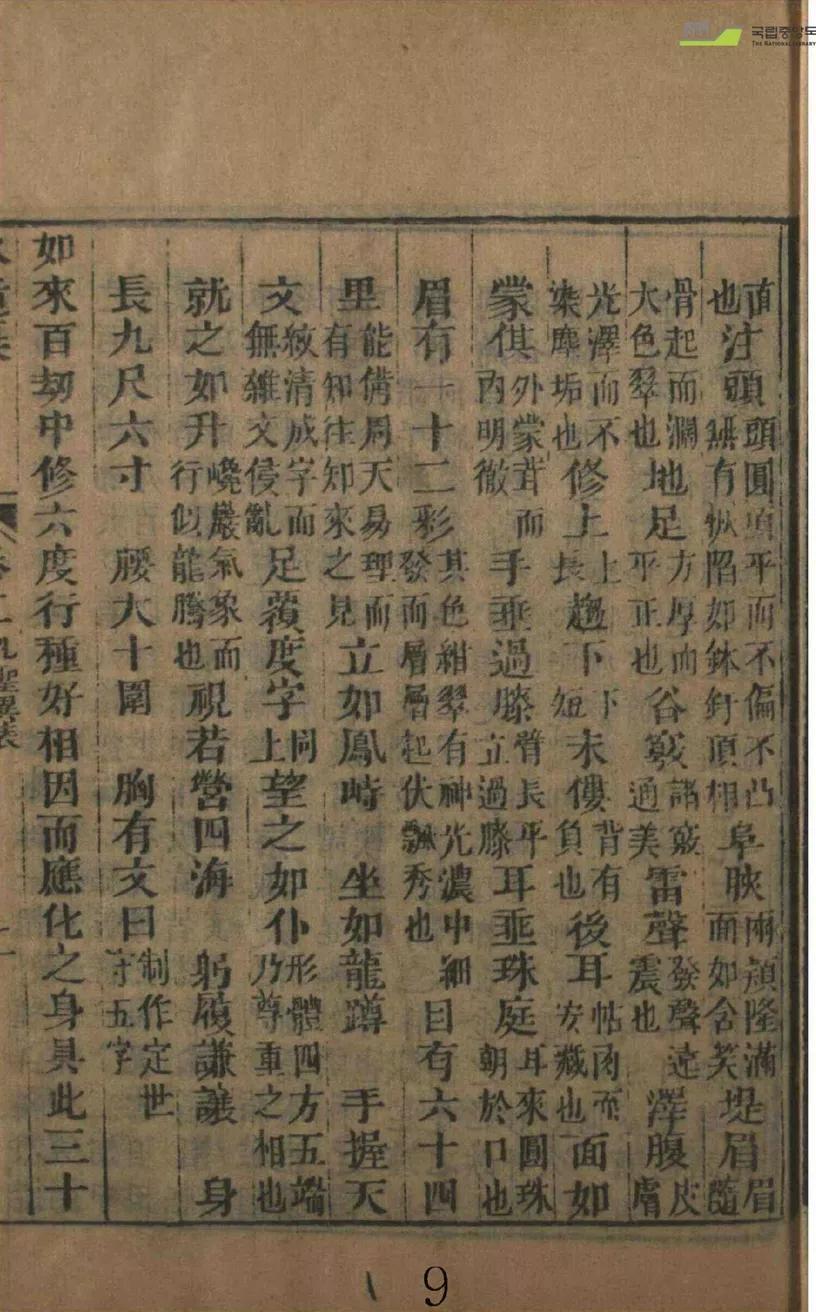 국립중앙도
THE NATIONAL LIBRARY
靣也注頭頭圓項平而不偏不凸無有㘭陷如鉢釪頂相阜脥兩頰隆滿面如含笑堤眉眉隨
骨起而濶大色翠也地足方厚而平正也谷竅諸竅通美雷聲發聲遠震也澤腹皮膚
光澤而不染塵垢也修上上長趨下下短末僂背有負也後耳帖肉而安藏也面如
蒙倛外蒙茸而內明徹手垂過膝臂長平立過膝耳垂珠庭耳來圓珠朝於口也
眉有一十二彩其色紺翠有神光濃中細發而層層起伏飄秀也目有六十四
里能備周天易理而有知往知來之見立如鳳峙 坐如龍蹲 手握天
文紋清成字而無雜文侵亂足履度字同上望之如仆形體四方五端乃尊重之相也
就之如升巉巖氣象而行似龍騰也視若營四海 躬履謙讓 身
長九尺六寸 腰大十圍 胸有文曰制作定世符五字
如來百劫中修六度行種好相因而應化之身具此三十
9